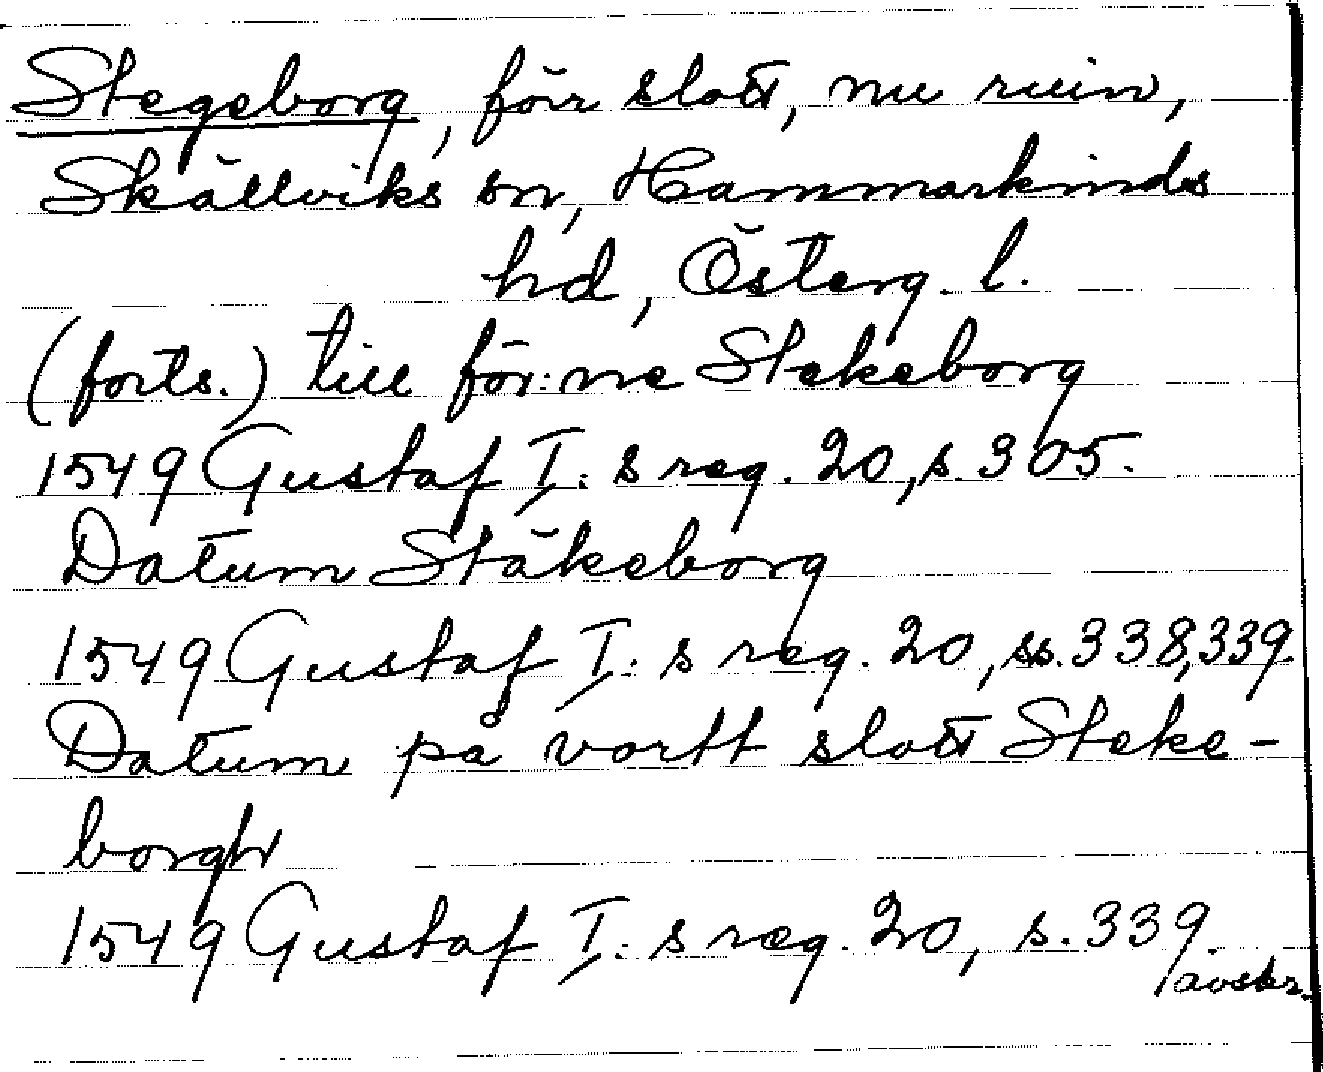 Stegeborg, förr slott, nu ruin,
Skällviks sn, Hammarkinds
hd, Österg. l.
(forts.) till för:ne Stekeborg
1549 Gustaf I:s reg. 20, s. 305.
Datum Stäkeborg
1549 Gustaf I:s reg. 20, ss. 338, 339.
Datum på vortt slott Steke-
borgh
1549 Gustaf I:s reg. 20, s. 339.
/avskr.